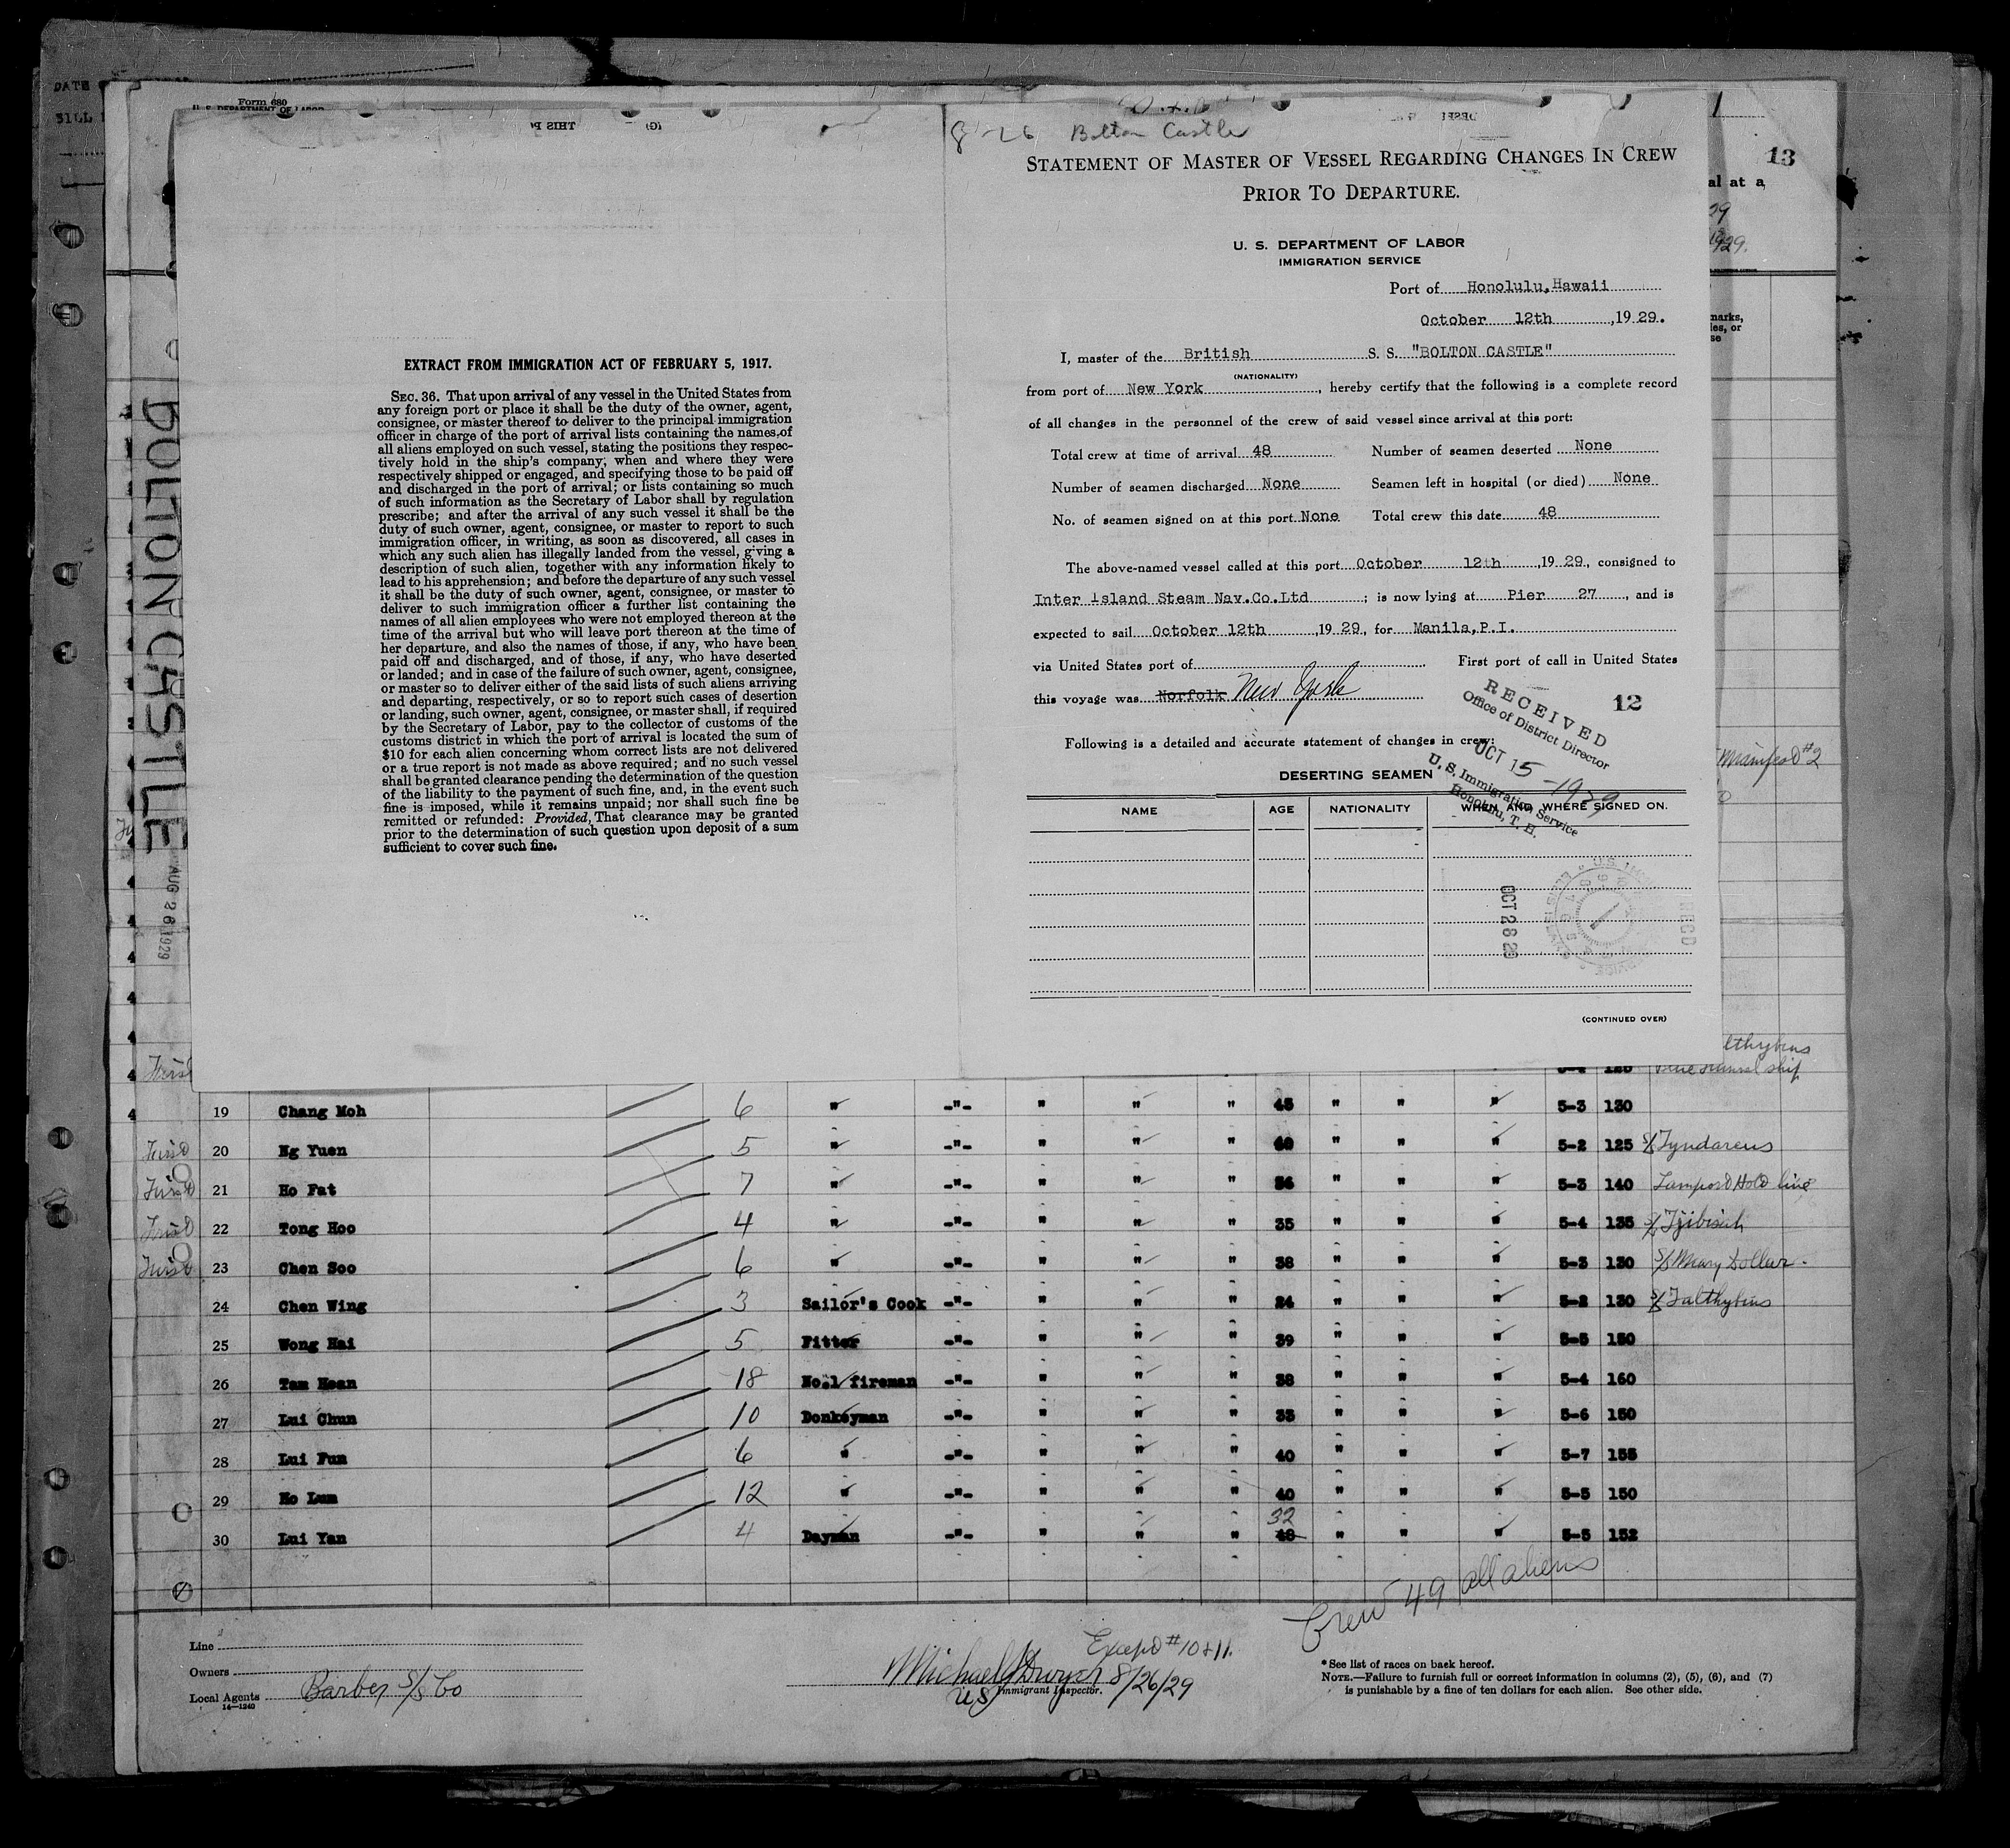 Form 680
13
Bolton Castle
STATEMENT OF MASTER OF VESSEL REGARDING CHANGES IN CREW
PRIOR TO DEPARTURE.
U. S. DEPARTMENT OF LABOR
IMMIGRATION SERVICE
Port of Honolulu, Hawaii
October 12th, 1929.
I, master of the British S. S. "BOLTON CASTLE"
(NATIONALITY)
from port of New York, hereby certify that the following is a complete record
of all changes in the personnel of the crew of said vessel since arrival at this port:
Total crew at time of arrival 48 Number of seamen deserted None
Number of seamen discharged None Seamen left in hospital (or died) None
No. of seamen signed on at this port None Total crew this date 48
The above-named vessel called at this port October 12th, 1929, consigned to
Inter Island Steam Nav.Co.Ltd; is now lying at Pier 27, and is
expected to sail October 12th, 1929, for Manila, P.I.
via United States port of First port of call in United States
this voyage was Norfolk New York
12
RECEIVED
Office of District Director
OCT 15-1929
U. S. Immigration Service
Honolulu, T. H.
Following is a detailed and accurate statement of changes in crew:
DESERTING SEAMEN
NAME AGE NATIONALITY WHEN AND WHERE SIGNED ON.
OCT 28 29
RECD
(CONTINUED OVER)
EXTRACT FROM IMMIGRATION ACT OF FEBRUARY 5, 1917.
SEC. 36. That upon arrival of any vessel in the United States from
any foreign port or place it shall be the duty of the owner, agent,
consignee, or master thereof to deliver to the principal immigration
officer in charge of the port of arrival lists containing the names of
all aliens employed on such vessel, stating the positions they respec-
tively hold in the ship's company, when and where they were
respectively shipped or engaged, and specifying those to be paid off
and discharged in the port of arrival; or lists containing so much
of such information as the Secretary of Labor shall by regulation
prescribe; and after the arrival of any such vessel it shall be the
duty of such owner, agent, consignee, or master to report to such
immigration officer, in writing, as soon as discovered, all cases in
which any such alien has illegally landed from the vessel, giving a
description of such alien, together with any information likely to
lead to his apprehension; and before the departure of any such vessel
it shall be the duty of such owner, agent, consignee, or master to
deliver to such immigration officer a further list containing the
names of all alien employees who were not employed thereon at the
time of the arrival but who will leave port thereon at the time of
her departure, and also the names of those, if any, who have been
paid off and discharged, and of those, if any, who have deserted
or landed; and in case of the failure of such owner, agent, consignee,
or master so to deliver either of the said lists of such aliens arriving
and departing, respectively, or so to report such cases of desertion
or landing, such owner, agent, consignee, or master shall, if required
by the Secretary of Labor, pay to the collector of customs of the
customs district in which the port of arrival is located the sum of
$10 for each alien concerning whom correct lists are not delivered
or a true report is not made as above required; and no such vessel
shall be granted clearance pending the determination of the question
of the liability to the payment of such fine, and, in the event such
fine is imposed, while it remains unpaid; nor shall such fine be
remitted or refunded: Provided, That clearance may be granted
prior to the determination of such question upon deposit of a sum
sufficient to cover such fine.
BOLTON CASTLE
AUG 26 1929
Manifest #2
19 Chang Moh 6 " -"- " " " 45 " " " 5-3 130
20 Ng Yuen 5 " -"- " " " 40 " " " 5-2 125 S/S Tyndareus
21 Ho Fat 7 " -"- " " " 36 " " " 5-3 140
22 Tong Hoo 4 " -"- " " " 35 " " " 5-4 135
23 Chen Soo 6 " -"- " " " 38 " " " 5-3 130 S/S Mary Dollar
24 Chen Wing 3 Sailor's Cook -"- " " " 24 " " " 5-2 130 S/S Talthybius
25 Wong Hai 5 Fitter -"- " " " 39 " " " 5-5 150
26 Tam Hean 18 No.1 fireman -"- " " " 38 " " " 5-4 160
27 Lui Chun 10 Donkeyman -"- " " " 33 " " " 5-6 150
28 Lui Fun 6 " -"- " " " 40 " " " 5-7 155
29 Ho Lum 12 " -"- " " " 40 " " " 5-5 150
30 Lui Yan 4 Dayman -"- " " " 32 " " " 5-5 152
Crew 49 all aliens
Except #10+11.
Line
Owners
Local Agents Barber S/S Co
14-1240
8/26/29
US Immigrant Inspector.
* See list of races on back hereof.
NOTE.—Failure to furnish full or correct information in columns (2), (5), (6), and (7)
is punishable by a fine of ten dollars for each alien. See other side.